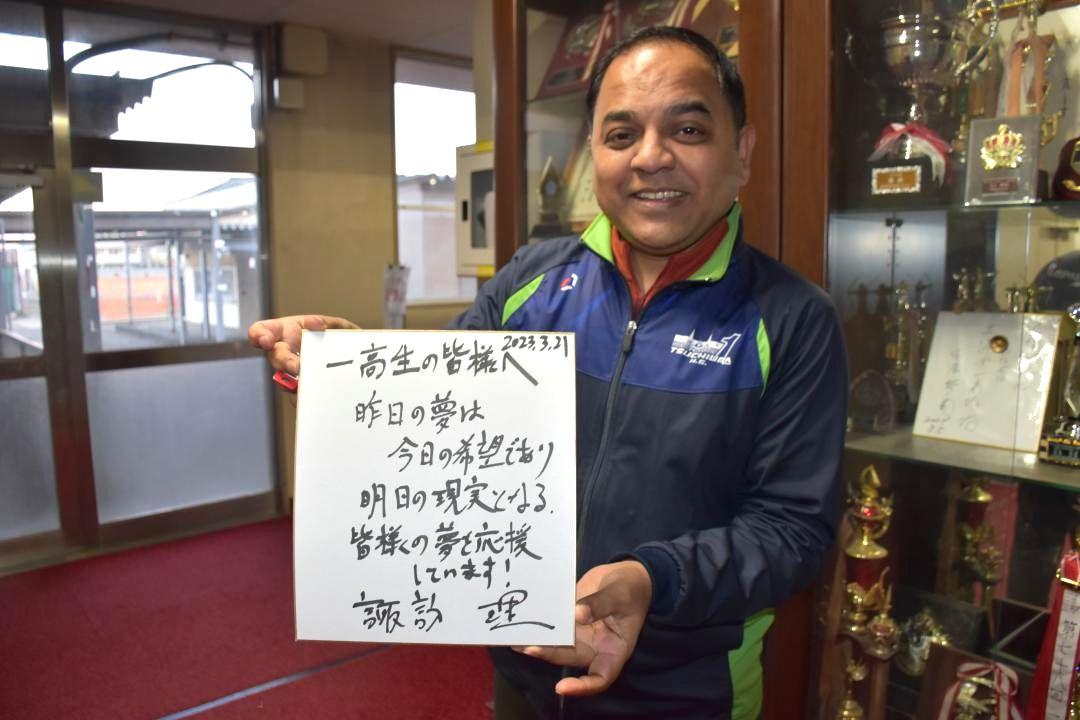 2023.3.21
一高生の皆様へ
昨日の夢は
今日の希望であり
明日の現実となる.
皆様の夢を応援
しています!
諏訪 理
1
TSUCHIURA
H.S.